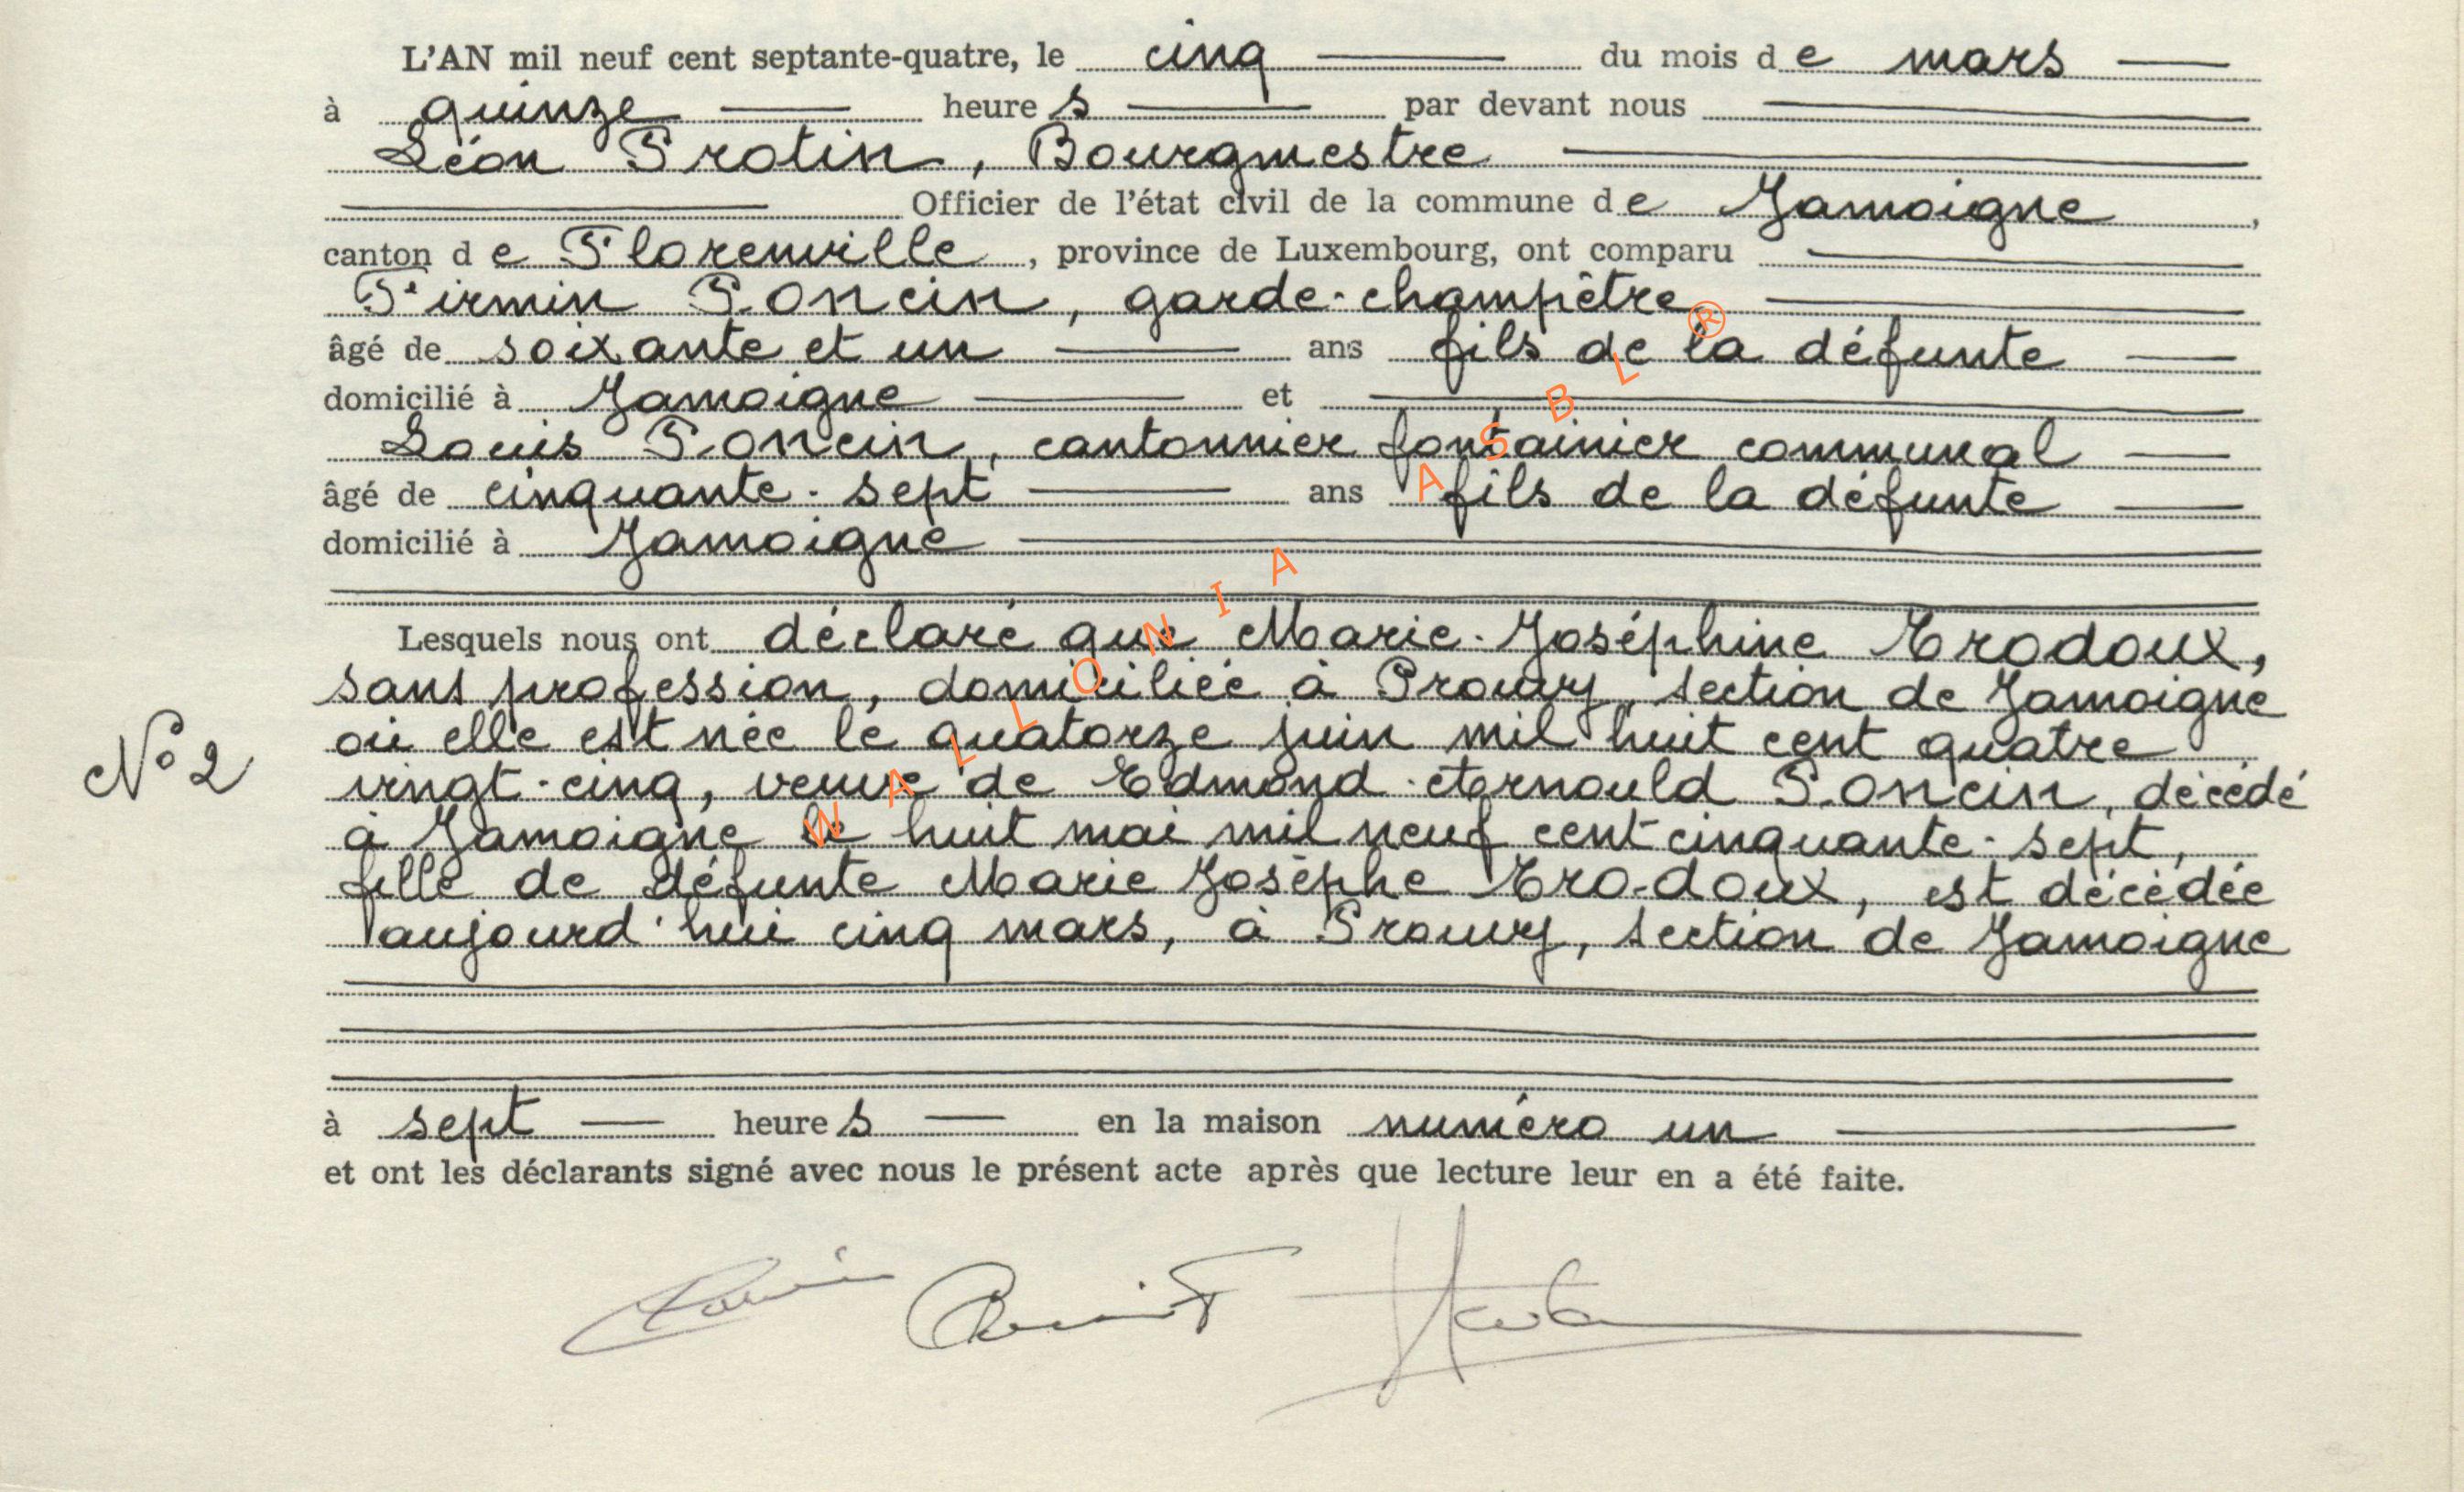 L'AN mil neuf cent septante-quatre, le cinq du mois de mars
à quinze heures par devant nous
Léon Protin, Bourgmestre
Officier de l'état civil de la commune de Jamoigne,
canton de Florenville, province de Luxembourg, ont comparu
Firmin Poncin, garde-champêtre
âgé de soixante et un ans fils de la défunte
domicilié à Jamoigne et
Louis Poncin, cantonnier fontainier communal
âgé de cinquante-sept ans fils de la défunte
domicilié à Jamoigne
Lesquels nous ont déclaré que Marie-Joséphine Erodoux,
sans profession, domiciliée à Prouvy, section de Jamoigne
où elle est née le quatorze juin mil huit cent quatre
N° 2
vingt-cinq, veuve de Edmond-Arnould Poncin, décédé
à Jamoigne le huit mai mil neuf cent cinquante-sept,
fille de défunte Marie Josèphe Erodoux, est décédée
aujourd'hui cinq mars, à Prouvy, section de Jamoigne
à sept heures en la maison numéro un
et ont les déclarants signé avec nous le présent acte après que lecture leur en a été faite.
WALLONIA ASBL®